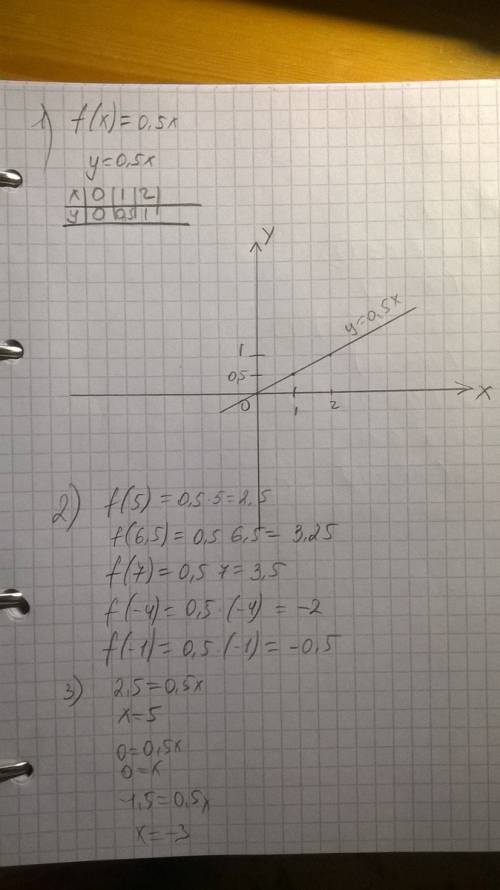 1) f(x)=0,5x
y=0,5x
x|0|1|2|
y|0|0,5|1
y
y=0,5x
1
0,5
0
1
2
x
2) f(5)=0,5·5=2,5
f(6,5)=0,5 6,5=3,25
f(7)=0,5 7=3,5
f(-4)=0,5·(-4)=-2
f(-1)=0,5·(-1)=-0,5
3) 2,5=0,5x
x=5
0=0,5x
0=x
-1,5=0,5x
x=-3